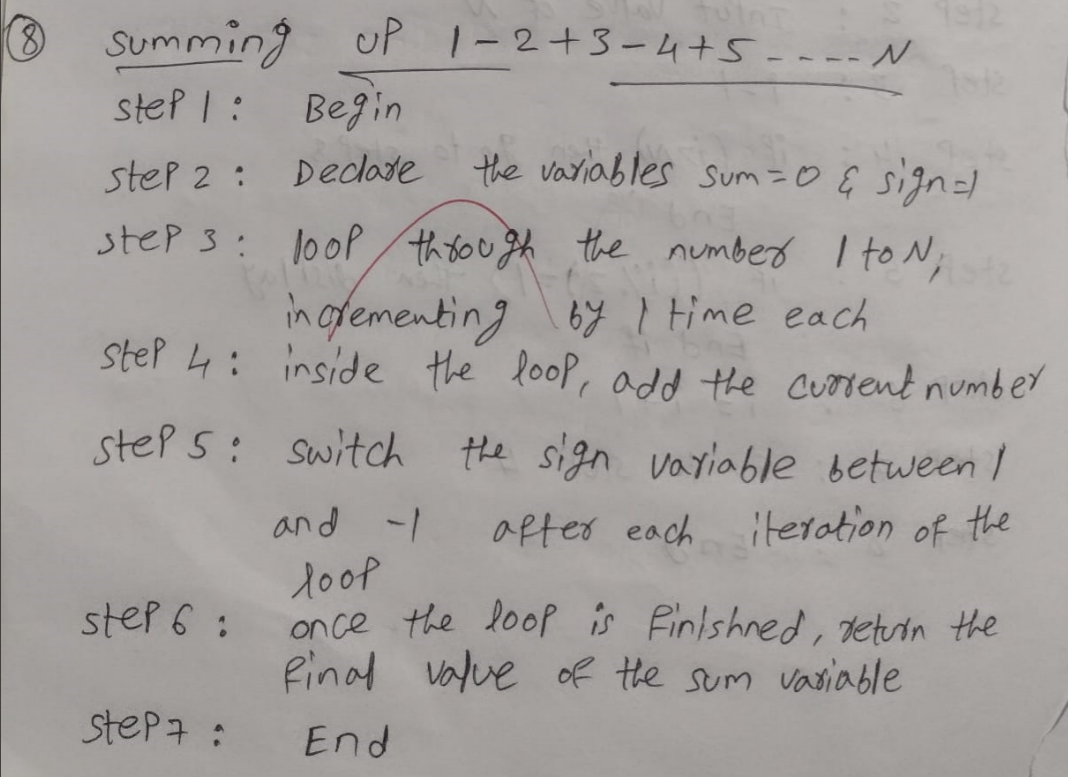 8 summing up 1-2+3-4+5-----N
step 1: Begin
step 2: Declare the variables sum=0 & sign=1
step 3: loop through the number 1 to N,
incrementing by 1 time each
step 4: inside the loop, add the current number
step 5: switch the sign variable between 1
and -1 after each iteration of the
loop
step 6: once the loop is finishned, return the
final value of the sum variable
step 7: End